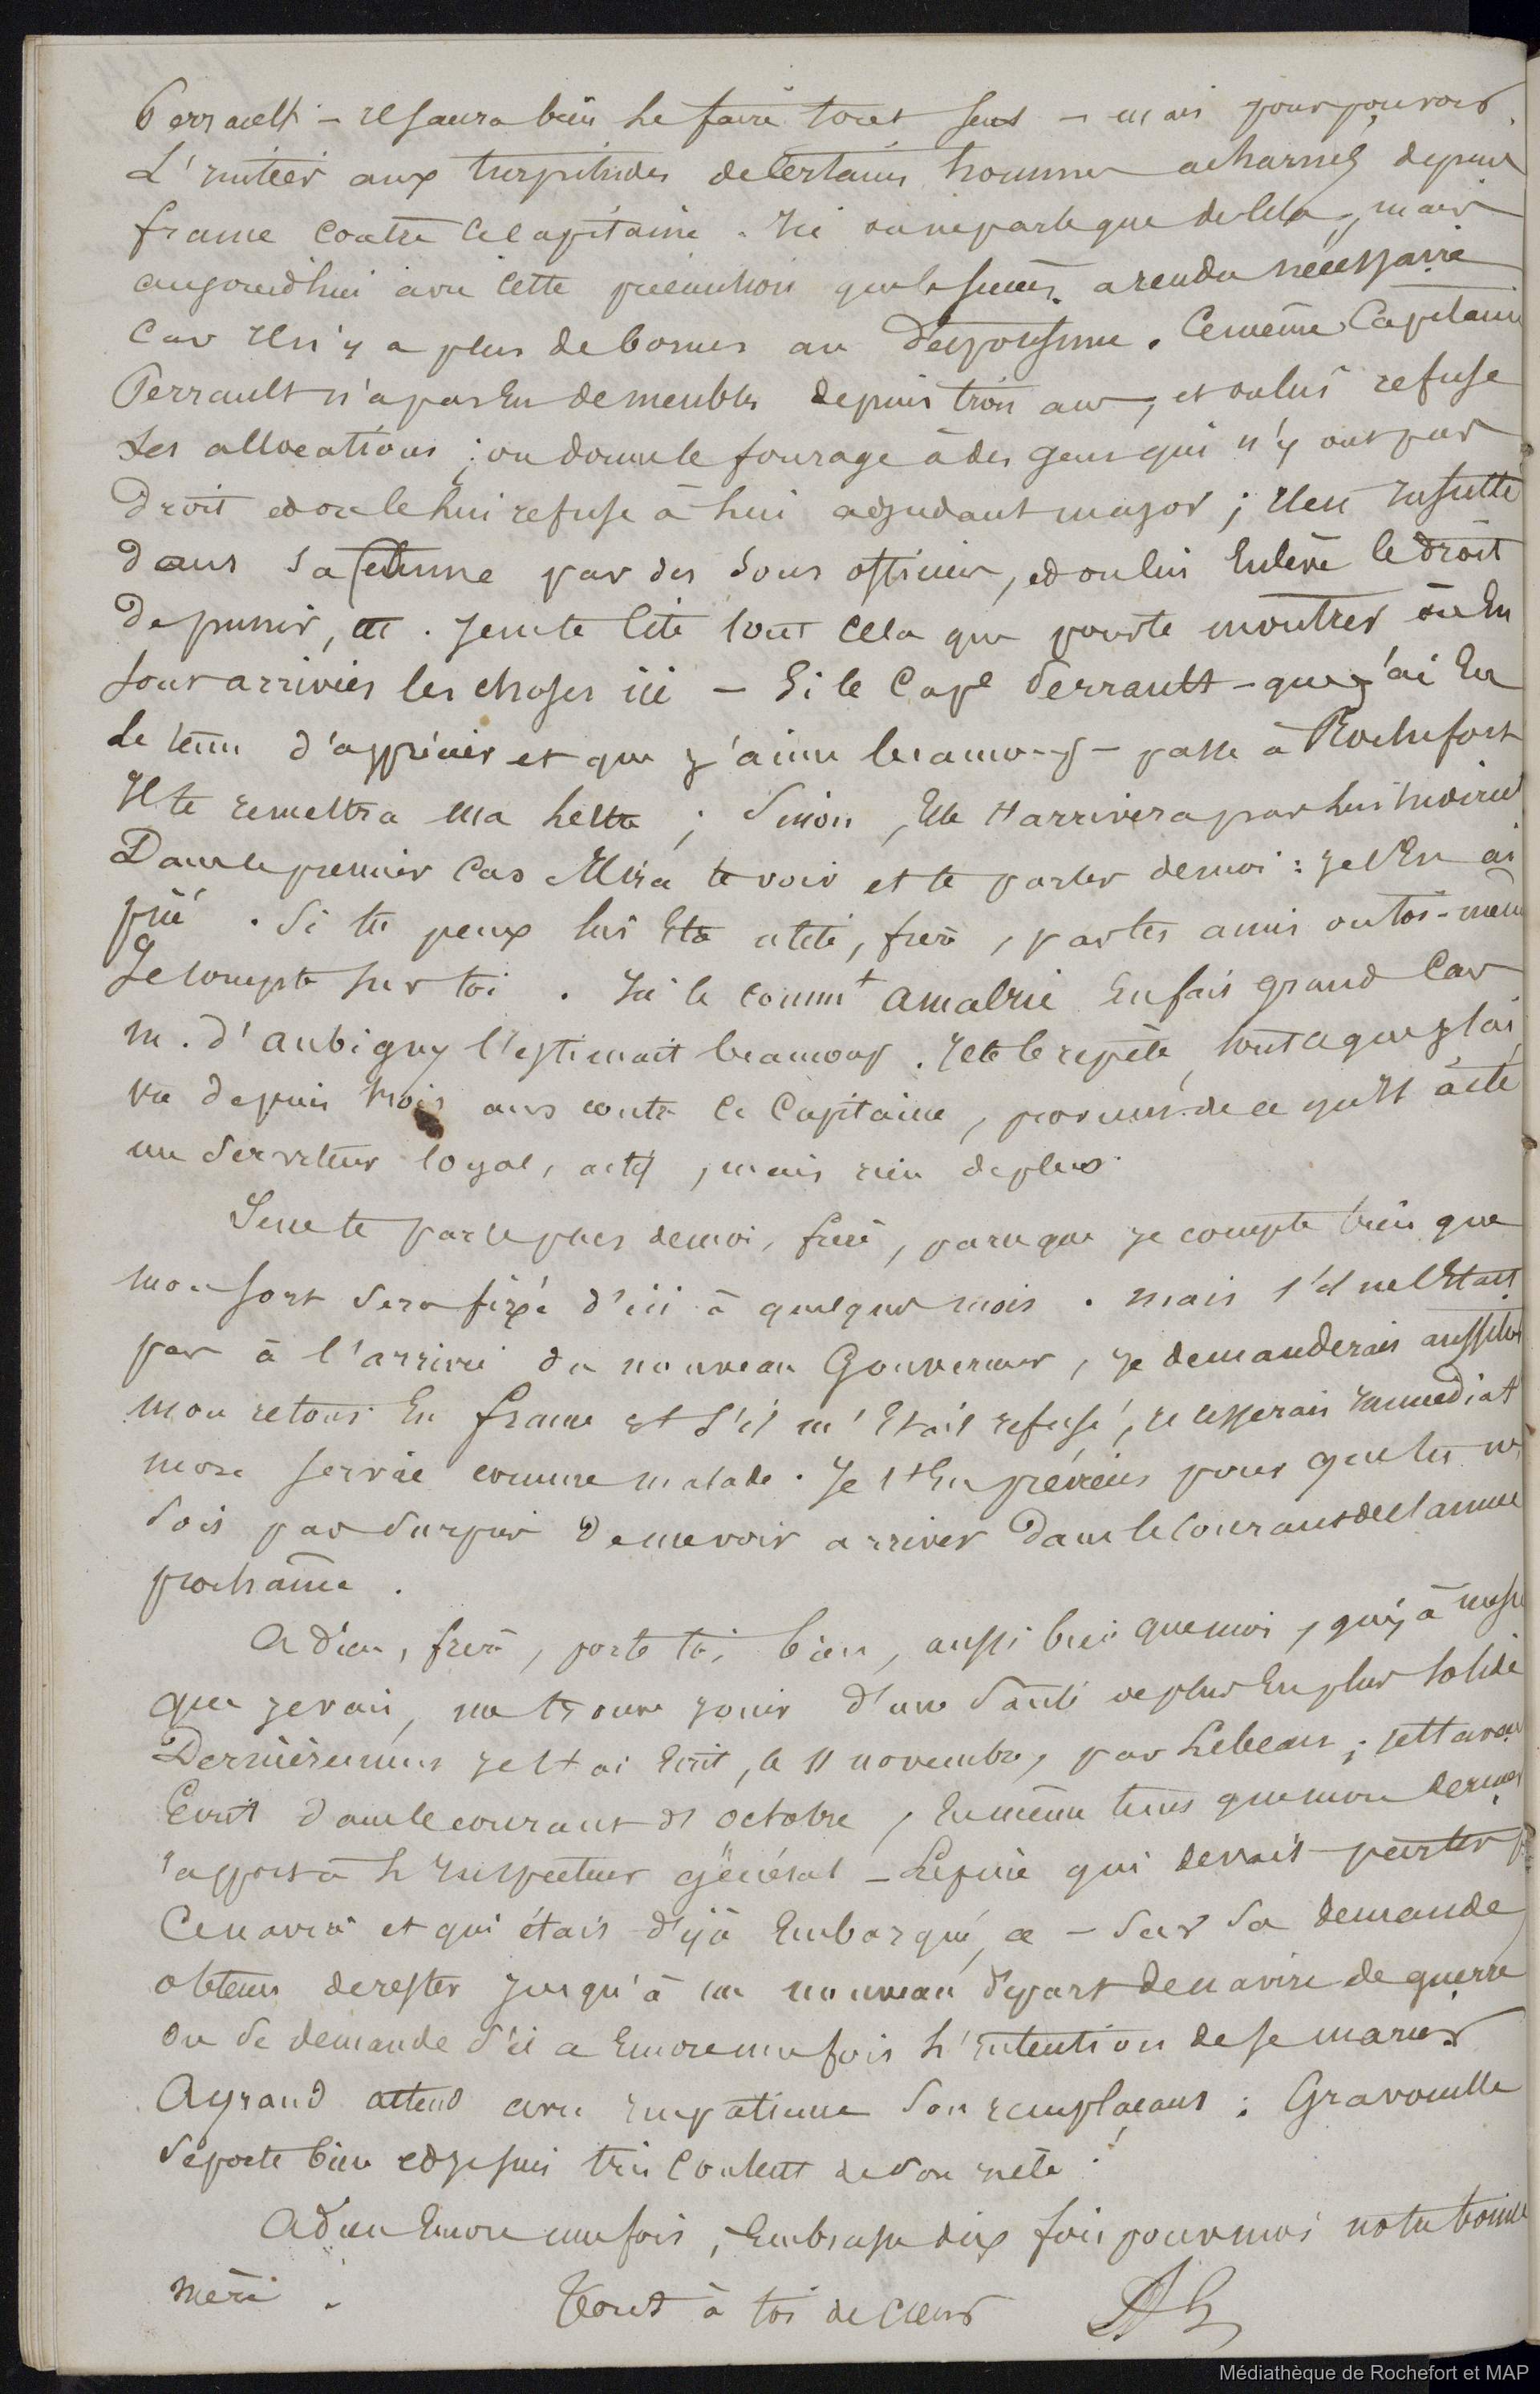 Perrault – il saura bien le faire tout seul – mais pour pouvoir
L'initier aux turpitudes de certains hommes acharnés depuis
france contre ce capitaine. Ici on ne parle que de cela, mais
aujourd'hui avec cette précaution que le succès a rendu nécessaire
Car il n'y a plus de bornes au despotisme. Ce même Capitaine
Perrault n'a pas eu de meubles depuis trois ans, et on lui refuse
Les allocations ; on donne le fourage à des gens qui n'y ont pas
Droit et on le lui refuse à lui adjudant major ; il est insulté
dans sa femme par des sous officiers, et on lui enlève le droit
de punir, etc. Je ne te cite tout cela que pour te montrer où en
sont arrivées les choses ici – Si le Cape Perrault – que j'ai eu
le tems d'apprécier et que j'aime beaucoup – passe à Rochefort
Il te remettra ma lettre ; Sinon, elle t'arrivera par lui
Dans le premier Cas il ira te voir et te parler de moi : je l'en ai
prié. Si tu peux lui être utile, frère, par tes amis ou toi-même
Je compte sur toi. Ici le commt Amalric en fait grand Cas
M. d'Aubigny l'estimait beaucoup. Je te le répète, tout ce que j'ai
vu depuis trois ans contre ce Capitaine, provient de ce qu'il a été
un Serviteur loyal, actif, mais rien de plus.
Je ne te parle plus de moi, frère, parce que je compte bien que
mon sort sera fixé d'ici à quelques mois. Mais s'il ne l'était
pas à l'arrivée du nouveau Gouverneur, je demanderais aussitôt
mon retour en france et s'il m'était refusé, je cesserais immédiat
mon service comme malade. Je t'en préviens pour que tu ne
Sois pas Surpris de me voir arriver dans le courant de l'année
prochaine.
Adieu, frère, porte toi bien, aussi bien que moi, qui, à mesure
que je vais, me trouve jouir d'une Santé de plus en plus solide
Dernièrement je t'ai écrit, le 11 novembre, par Lebeau ; je t'avais
Ecrit dans le courant d'octobre, en même tems que mon dernier
rapport à L'Inspecteur général – Lépine qui devait partir p
Ce navire et qui était déjà Embarqué, a – sur sa demande
obtenu de rester jusqu'à un nouveau départ de navire de guerre
On se demande s'il a encore une fois l'intention de se marier.
Ayraud attend avec impatience son remplaçant : Gravouille
se porte bien et je suis très content de son zèle.
Adieu Encore une fois, Embrasse dix fois pour moi notre bonne
mère. Tout à toi de Cœur
Médiathèque de Rochefort et MAP